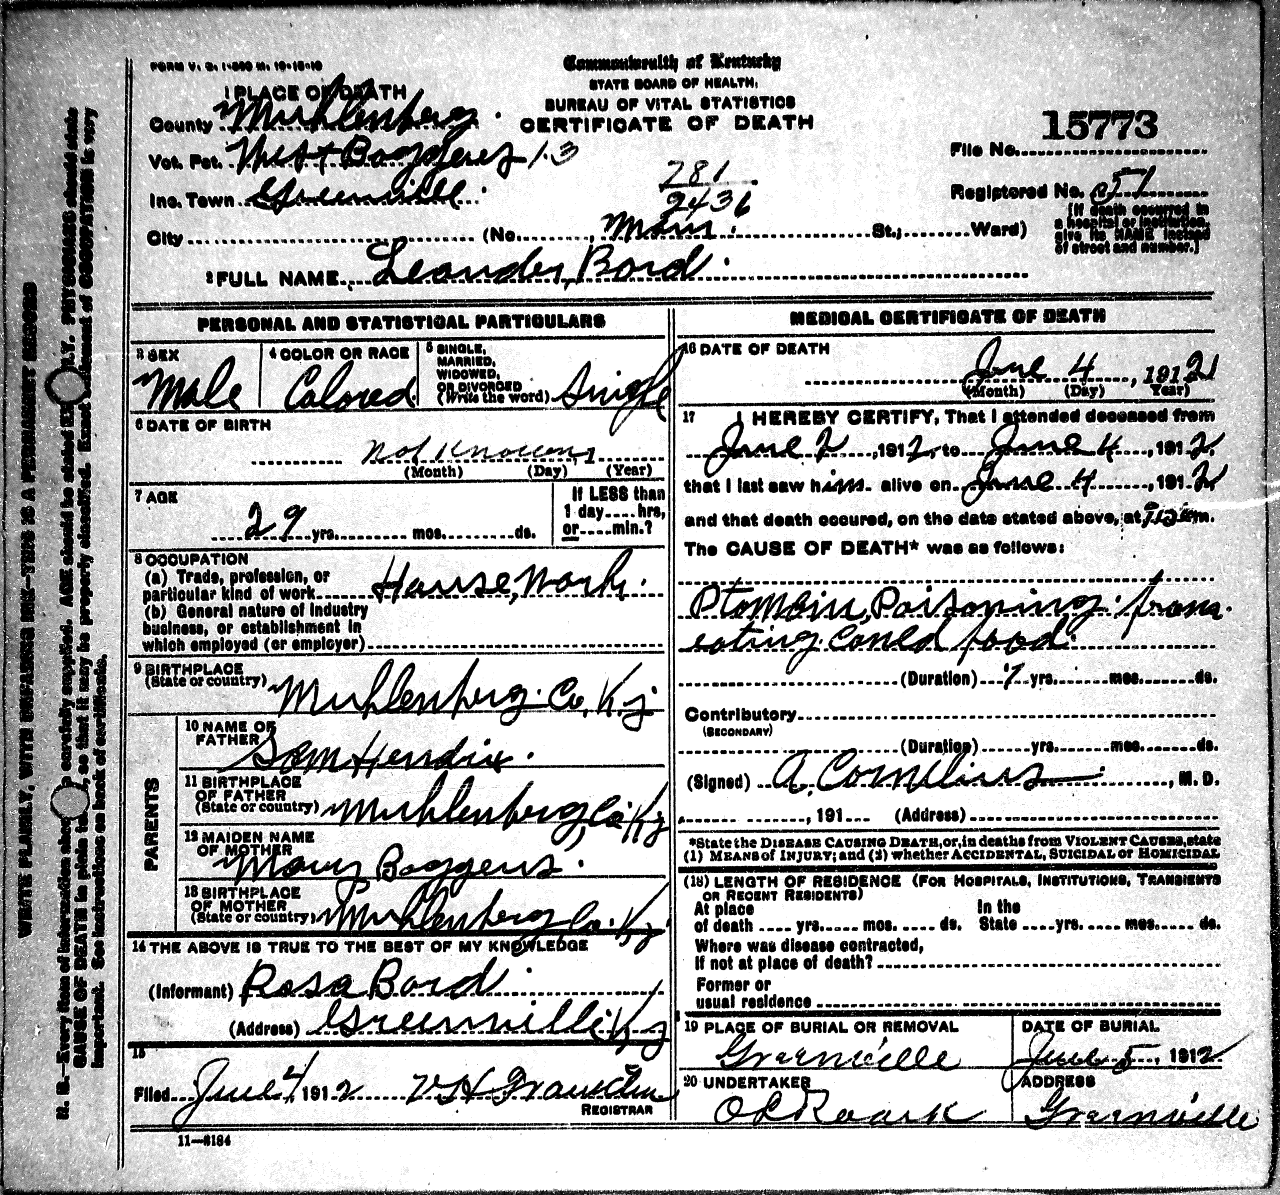 FORM V. S. 1-
Commonwealth of Kentucky
STATE BOARD OF HEALTH,
BUREAU OF VITAL STATISTICS
CERTIFICATE OF DEATH
1 PLACE OF DEATH
County Muhlenberg.
Vot. Pct. West Boggeses 13
Inc. Town Greenville.
City (No. , Main. St.; Ward)
781
2436
15773
File No.
Registered No. 51
[If death occurred in a hospital or institution, give its NAME instead of street and number.]
2 FULL NAME Leander, Bord.
PERSONAL AND STATISTICAL PARTICULARS
3 SEX
Male
4 COLOR OR RACE
Colored
5 SINGLE, MARRIED, WIDOWED, OR DIVORCED (Write the word) Single
6 DATE OF BIRTH
Not Known, 1
(Month) (Day) (Year)
7 AGE
29 yrs. mos. ds.
If LESS than 1 day....hrs, or....min.?
8 OCCUPATION
(a) Trade, profession, or particular kind of work House, Work.
(b) General nature of industry business, or establishment in which employed (or employer)
9 BIRTHPLACE (State or country) Muhlenberg. Co, Ky
PARENTS
10 NAME OF FATHER Sam Hendix.
11 BIRTHPLACE OF FATHER (State or country) Muhlenberg, Co Ky
12 MAIDEN NAME OF MOTHER Mary Boggess.
13 BIRTHPLACE OF MOTHER (State or country) Muhlenberg Co. Ky
14 THE ABOVE IS TRUE TO THE BEST OF MY KNOWLEDGE
(Informant) Rosa Bord.
(Address) Greenville Ky
15
Filed June 4, 1912 V H Franklin
REGISTRAR
11—8184
MEDICAL CERTIFICATE OF DEATH
16 DATE OF DEATH
June 4, 1912
(Month) (Day) Year)
17 I HEREBY CERTIFY, That I attended deceased from
June 2, 1912, to June 4, 1912,
that I last saw him alive on June 4, 1912
and that death occured, on the date stated above, at m.
The CAUSE OF DEATH* was as follows:
Ptomain, Poisoning. from
eating Caned food.
(Duration) yrs. mos. ds.
Contributory
(SECONDARY)
(Duration) yrs. mos. ds.
(Signed) A. Cornelius, M. D.
, 191 (Address)
*State the DISEASE CAUSING DEATH, or, in deaths from VIOLENT CAUSES, state
(1) MEANS of INJURY; and (2) whether ACCIDENTAL, SUICIDAL or HOMICIDAL
(18) LENGTH OF RESIDENCE (FOR HOSPITALS, INSTITUTIONS, TRANSIENTS OR RECENT RESIDENTS)
At place of death .... yrs..... mos. .... ds. In the State ....yrs. .... mos..... ds.
Where was disease contracted,
If not at place of death?
Former or
usual residence
19 PLACE OF BURIAL OR REMOVAL
Greenville
DATE OF BURIAL
June 5, 1912
20 UNDERTAKER
O L Roark
ADDRESS
Greenville
WRITE PLAINLY, WITH UNFADING INK—THIS IS A PERMANENT RECORD
N. B.—Every item of information should be carefully supplied. AGE should be stated EXACTLY. PHYSICIANS should state
CAUSE OF DEATH in plain terms, so that it may be properly classified. Exact statement of OCCUPATION is very
important. See instructions on back of certificate.